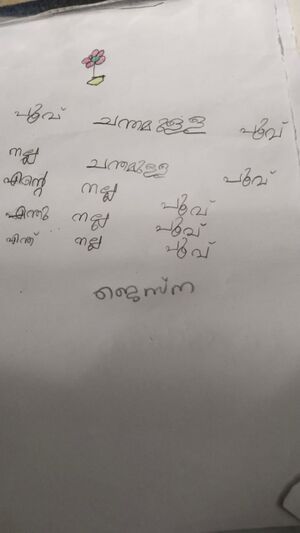 പൂവ് ചന്തമുള്ള പൂവ്
നല്ല ചന്തമുള്ള പൂവ്
എന്റെ നല്ല പൂവ്
എന്തു നല്ല പൂവ്
എന്ത് നല്ല പൂവ്
ജെസ്ന